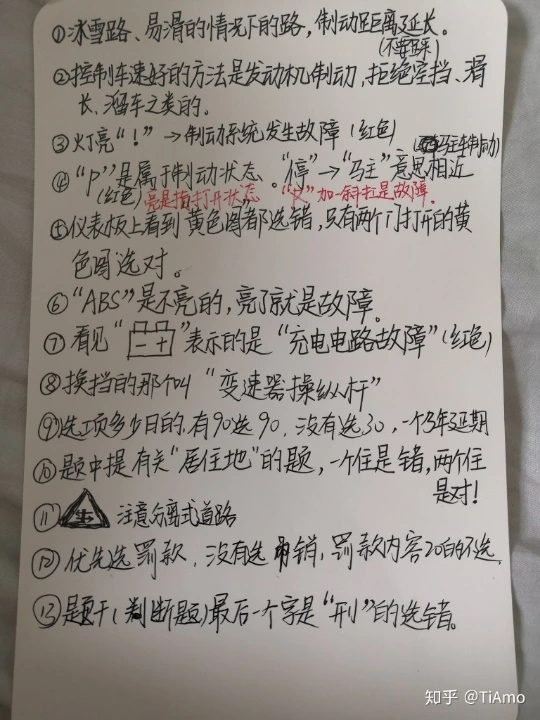 ①冰雪路、易滑的情况下的路,制动距离延长。
(不要踩)
②控制车速好的方法是发动机制动,拒绝空挡、滑
长、溜车之类的。
③灯亮“!”→制动系统发生故障(红色)
(驻车制动)
④“P”是属于制动状态。“停”→“驻”意思相近
(红色)亮是指打开状态 加一斜杠是故障。
⑤仪表板上看到黄色图都选错,只有两个门打开的黄
色图选对。
⑥“ABS”是不亮的,亮了就是故障。
⑦看见“- +”表示的是“充电电路故障”(红色)
⑧换挡的那个叫“变速器操纵杆”
⑨选项多少日的,有90选90,没有选30,一个3年延期
⑩题中提有关“居住地”的题,一个住是错,两个住
是对!
⑪ 注意分离式道路
⑫优先选罚款,没有选吊销,罚款内容20的不选
⑬题干(判断题)最后一个字是“刑”的选错。
知乎 @TiAmo